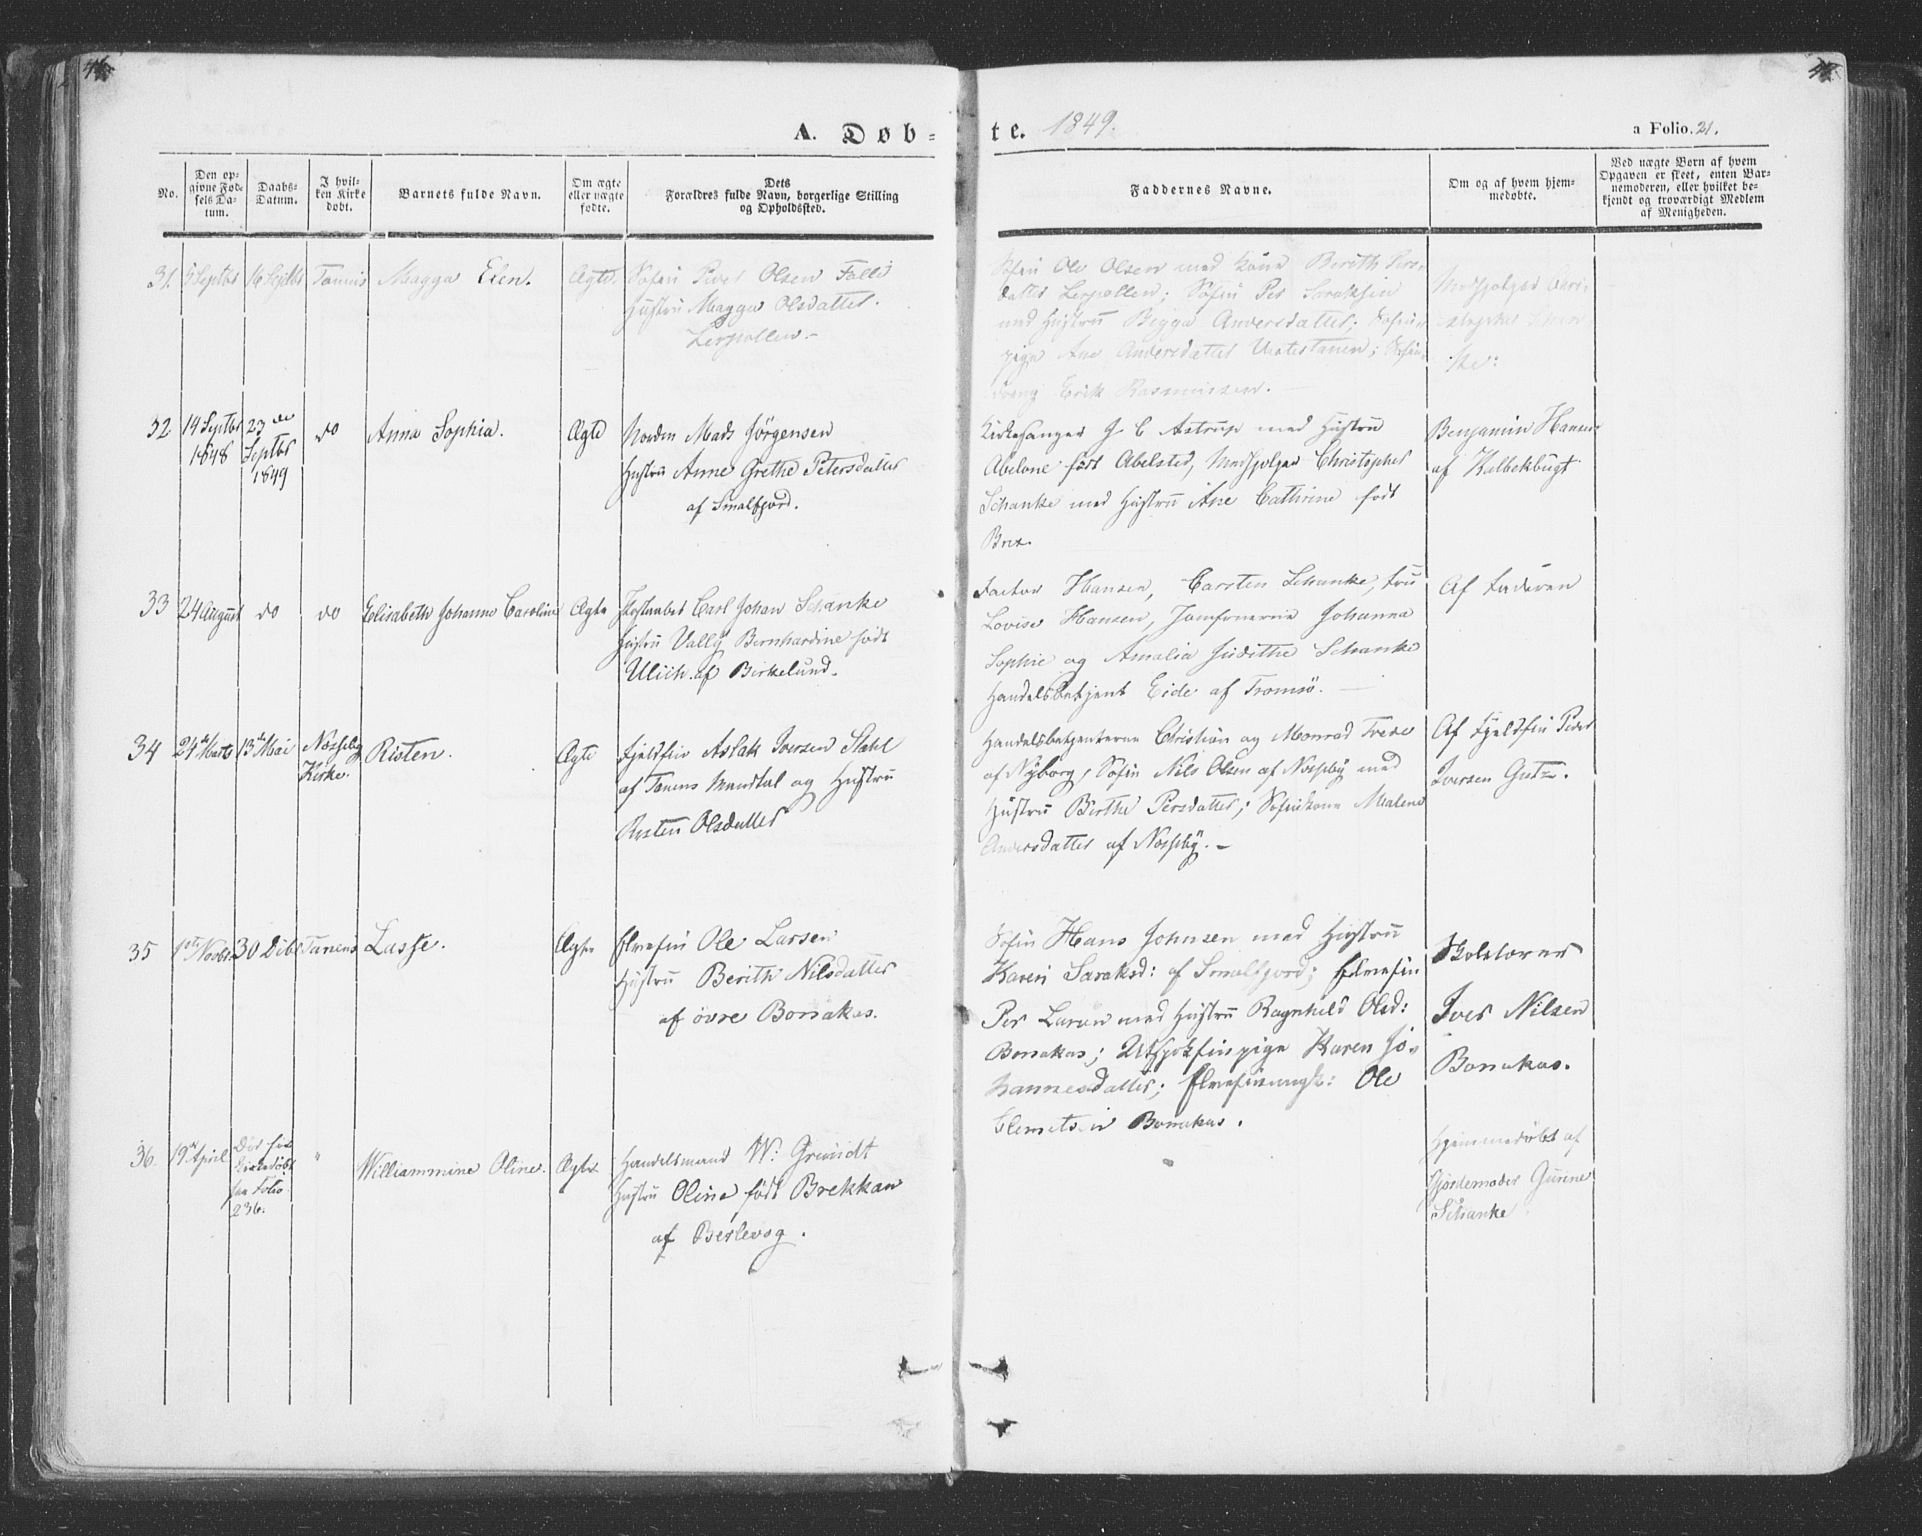 A. Døb-te. 1849.
a Folio. 21.
No.
Den op-
givne Fød-
sels Da-
tum.
Daabs-
Datum.
I hvil-
ken Kirke
døbt.
Barnets fulde Navn.
Om ægte
eller uægte
fødte.
Dets
Forældres fulde Navn, borgerlige Stilling
og Opholdssted.
Faddernes Navne.
Om og af hvem hjem-
medøbte.
Ved uægte Børn af hvem
Opgaven er skeet, enten Bar-
nemoderen, eller hvilket be-
kjendt og troværdigt Medlem
af Menigheden.
31.
5 Septbr
16 Septbr
Tanens
Magga Elen.
Ægte.
Søfin Peder Olsen Falli
Hustru Magga Olsdatter.
Lerpollen.-
Søfin Ole Olsen med Kone Berith
datter Lerpollen; Søfin Per Saraksen
med Hustru Bigga Andersdatter; Søfin-
pige Ane Andersdatter
dreng Erik Rasmussen.
Medhjelper Chri-
stopher Schan-
ke:
32
14 Septbr
1848
23de
Septbr
1849
do
Anna Sophia.
Ægte
Norden Mads Jørgensen
Hustru Anne Grethe Petersdatter
af Smalfjord.
Kirkesanger G C Astrup med Hustru
Abelone født Abelsted, Medhjelper Christopher
Schanke med Hustru Ane Cathrine født
Brix.
Benjamin Hansen
af Kalbekbugt
33
24 August
do
do
Elisabeth Johanne Caroline
Ægte
Carl Johan Schanke
Hustru Vally Bernhardine født
Ulich. af Birkelund.
Factor Hansen, Carsten Schanke, fru
Lovise Hansen, Jomfruerne Johanna
Sophie og Amalia Judithe Schanke
Handelsbetjent Eide af Tromsö.
Af Faderen
34
24de Marts
13de Mai
Næsseby
Kirke.
Risten.
Ægte
Fjeldfin Aslak Iversen Stahl
af Tanens Mandtal og Hustru
Risten Olsdatter
Handelsbetjenterne Christian og Monrad
af Nyborg, Søfin Nils Olsen af Næsseby med
Hustru Birthe Persdatter; Søfinkone Malene
Andersdatter af Næsseby.-
Af Fjeldfin Peder
Iversen
35
1ste Novbr
30 Dcbr
Tanens
Lasse.
Ægte
Elvefin Ole Larsen
Hustru Berith Nilsdatter
af övre Bonakas.
Søfin Hans Johnsen med Hustru
Karen Saraksd: af Smalfjord; Elvefin
Per Larsen med Hustru Ragnhild Olsd:
Bonakas; Utsjokfinpige Karen Jo-
hannesdatter; Elvefinungk: Ole
Clemetsen Bonakas.
Skolelærer
Iver Nilsen
Bonakas.
36.
19de April
Død før
Kirkedøbt
see Folio
236.
"
Williammine Oline.
Ægte
Handelsmand W: Grundt
Hustru Oline født Brekkan
af Berlevog.
Hjemmedøbt af
Gjordemoder Gurine
Schanke